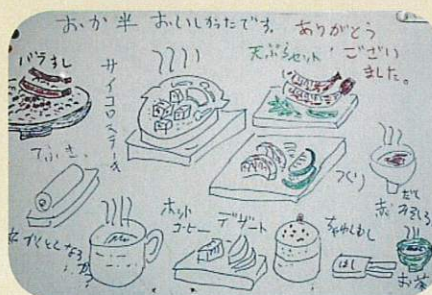 おか半 おいしかったです。ありがとう
ございい
ました。
バラすし
サイコロステーキ
天ぷらセット
てふき。
つくり
赤だし
ホット
コーヒー
デザート
ちゃわんむし
はし
お茶